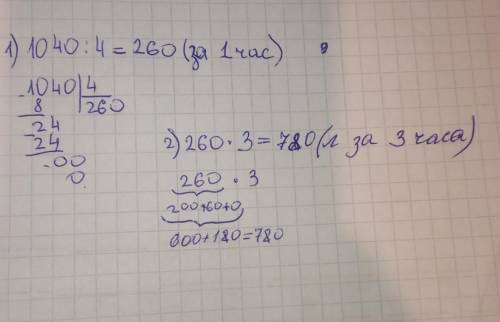 1) 1040 : 4 = 260 (за 1 час)
-1040 | 4
8 | 260
-24
24
-00
0.
2) 260 · 3 = 780 (л за 3 часа)
260 · 3
200+60+0
600+180=780